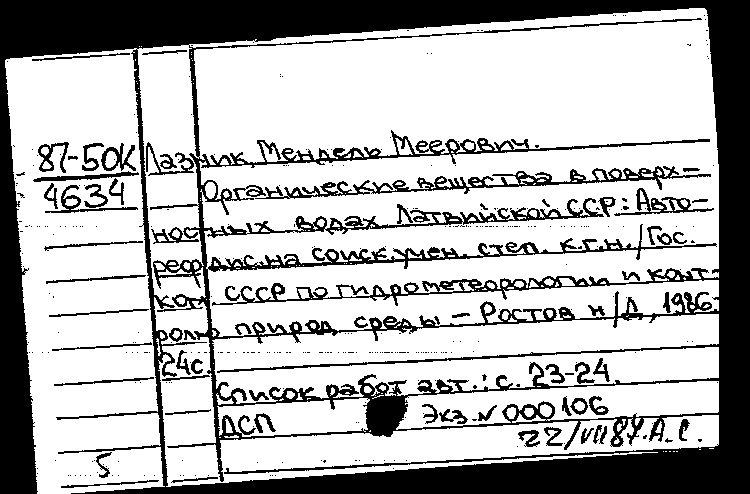 87-50К Лазник, Мендель Меерович.
4634 Органические вещества в поверх-
ностных водах Латвийской ССР: Авто-
реф. дис. на соиск. учен. степ. к.г.н. / Гос.
ком. СССР по гидрометеорологии и конт-
ролю природ. среды. - Ростов н/Д, 1986.
24с.
Список работ авт.: с. 23-24.
ДСП Экз. N 000106
22/VII 87. А.С.
5